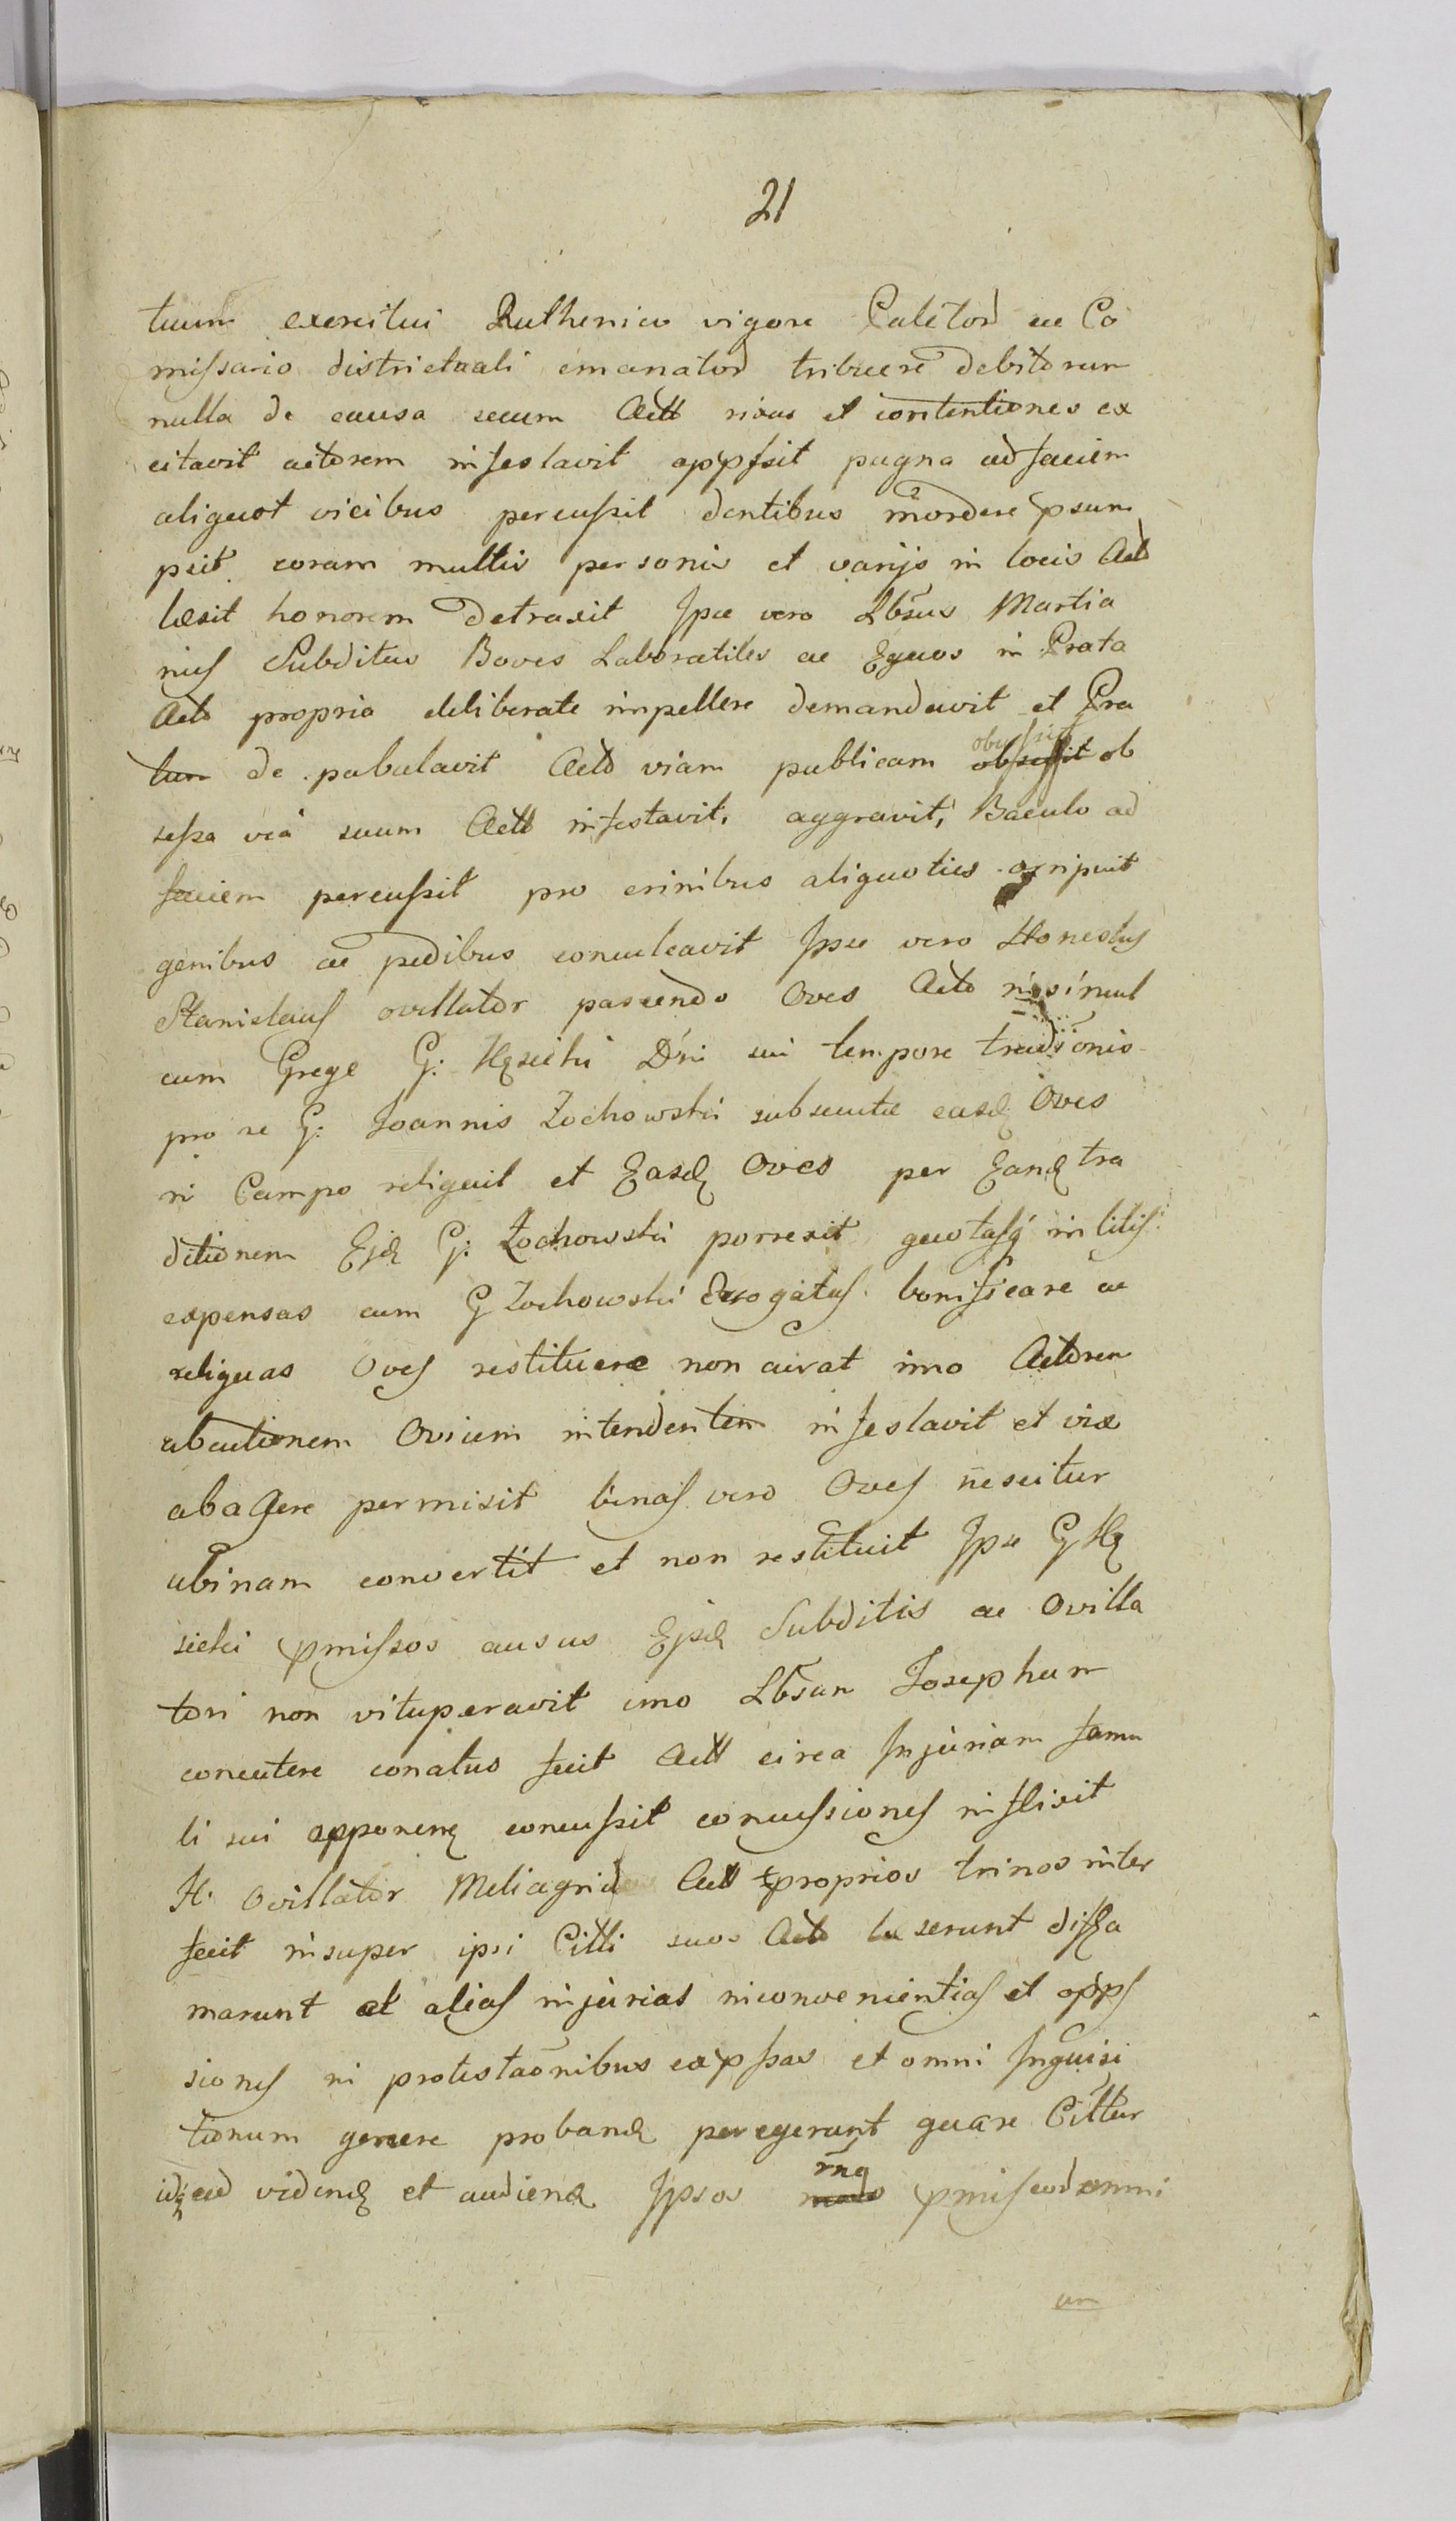 21
tuum exercitui Ruthenico vigore Palet̃ord ac Co
missario districtuali emanatord tribuere debitorum
nulla de causa secum Actt rixas et contentiones ex
citavit actorem infestavit opp̃ssit pugna ad faciem
aliquot vicibus percussit dentibus mordere p̃sum
psit coram multis personis et varijs in locis Acto
læsit honorem detraxit Ipse vero Lb̃sus Martia
nus Subditus Boves Laboratiles ac Equos in Prata
Acto propria deliberate impellere demandavit et Pra
tum de pabulavit Acto viam publicam obsessit ob
sessa via suum Actt infestavit, aggravit, Baculo ad
faciem percussit pro crinibus aliquoties arripuit
genibus ac pedibus conculcavit Ipse vero Honestus
Stanislaus ovillator pascendo Oves Acto insimul
cum Grege G: Kęsicki D̃ni sui tempore tradi̇̃onis
pro se G: Joannis Zochowski subsecutæ easd Oves
in Campo reliquit et Easd Oves per Eand tra
ditionem Ejd G: Zochowski porrexit quotasq in litis:
expensas cum G Zochowski Erogatas bonificare ac
reliquas Oves restituere non curat imo Actorem
abeutionem Ovium intendentem infestavit et vix
abagere permisit binas vero Oves nescitur
ubinam convertit et non restituit Ipse G Kę
sicki p̃missos ausus Ejsd Subditis ac Ovilla
tori non vituperavit imo Lb̃sum Josephum
concutere conatus fuit Actt circa Injuriam famu
li sui opponend concussit concussiones inflixit
H. Ovillator Meliagrid Actt proprios trinos inter
fecit insuper ipsi Citti suos Acto læserunt diffa
marunt et alias injurias inconvenientias et opp̃s
siones in protestaõnibus exp̃ssas et omni Inquisi
tionum genere proband peregerunt quare Cittur
idq ad vidend et audiend Ipsos rñe p̃mis eod omni
um